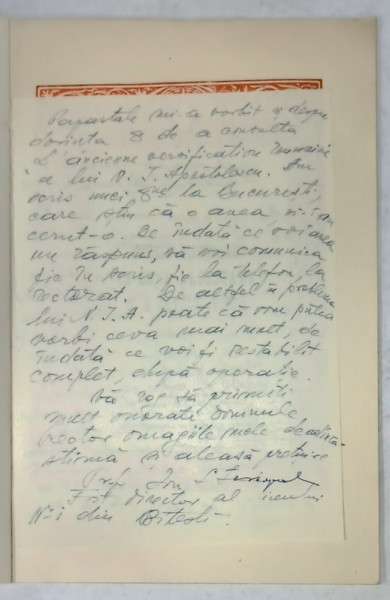 mi-a vorbit și despre
dorința de a consulta
L'ancienne versification roumaine
a lui N. I. Apostolescu. Am
scris unei la București,
care știu că o avea, și i-am
cerut-o. De îndată ce voi avea
un răspuns, vă voi comunica
fie în scris, fie la telefon, la
rectorat. De altfel în problema
lui N. I. A. poate că vom putea
vorbi ceva mai mult, de
îndată ce voi fi restabilit
complet după operație.
Vă rog să primiți
mult onorate domnule
rector omagiile mele de
stimă și aleasă prețuire
Prof. Ion
Fost director al liceului
N-1 din Pitești.